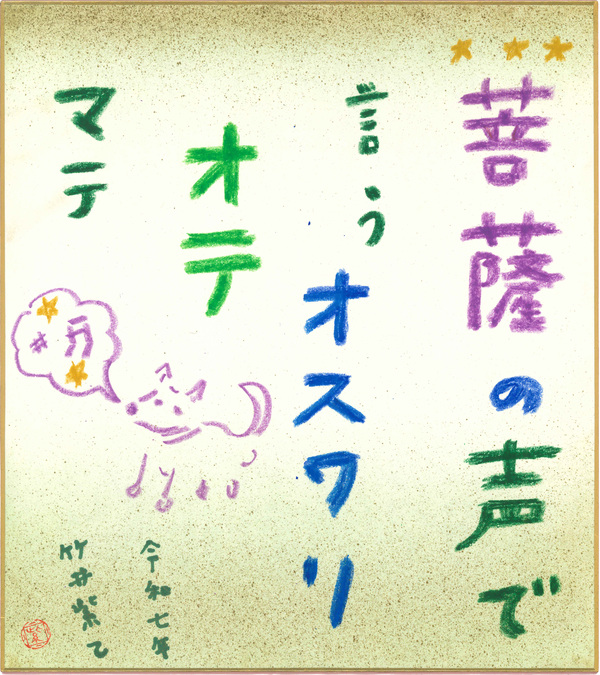 菩薩の声で
言う
オスワリ
オテ
マテ
令和七年
竹井紫乙